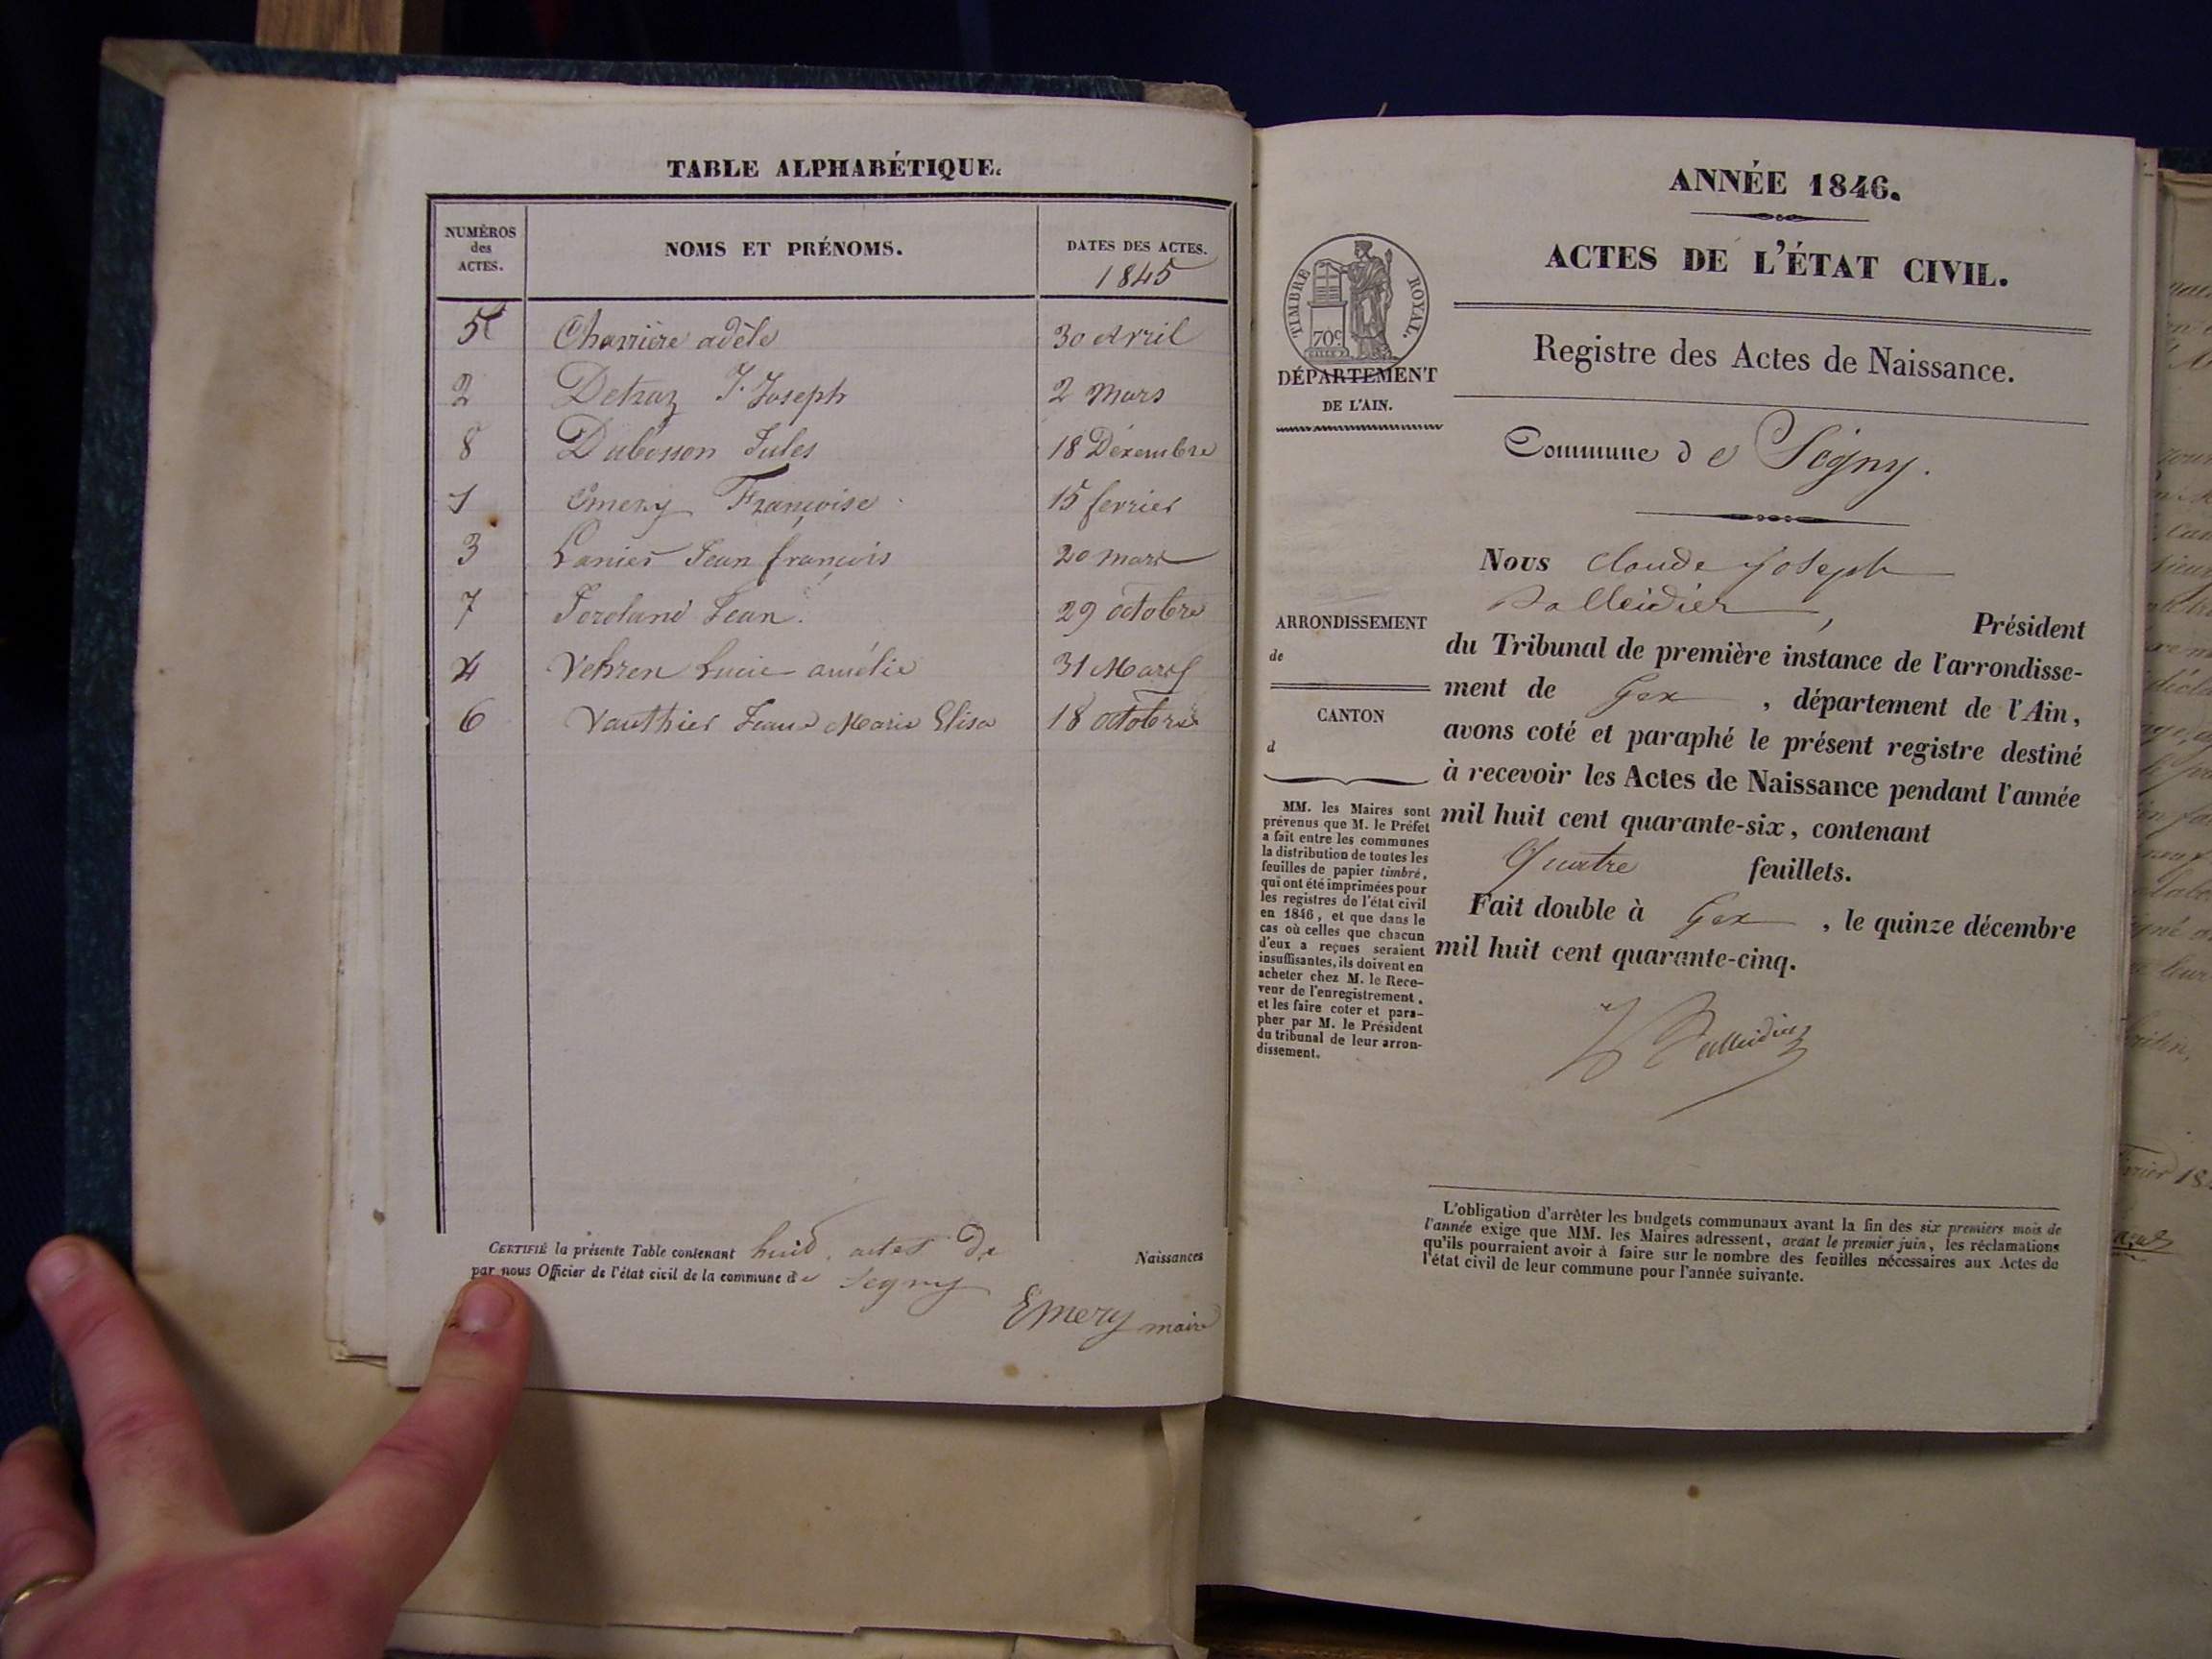 TABLE ALPHABÉTIQUE.
NUMÉROS des ACTES. NOMS ET PRÉNOMS. DATES DES ACTES.
1845
5 Charrière adèle 30 Avril
2 Detraz J. Joseph 2 Mars
8 Dubosson Jules 18 Décembre
1 Emery Françoise 15 fevrier
3 Lanier Jean françois 20 mars
7 Jean 29 octobre
4 Lucie amélie 31 Mars
6 Vauthier Jeanne Marie Elisa 18 octobre
CERTIFIÉ la présente Table contenant huit actes de Naissances
par nous Officier de l'état civil de la commune de Segny
Emery maire
ANNÉE 1846.
ACTES DE L'ÉTAT CIVIL.
TIMBRE ROYAL.
70c
DÉPARTEMENT
DE L'AIN.
Registre des Actes de Naissance.
Commune de Ségny.
ARRONDISSEMENT
de
CANTON
d
MM. les Maires sont
prévenus que M. le Préfet
a fait entre les communes
la distribution de toutes les
feuilles de papier timbré,
qui ont été imprimées pour
les registres de l'état civil
en 1846, et que dans le
cas où celles que chacun
d'eux a reçues seraient
insuffisantes, ils doivent en
acheter chez M. le Rece-
veur de l'enregistrement,
et les faire coter et para-
pher par M. le Président
du tribunal de leur arron-
dissement.
Nous Claude Joseph
Balleidier, Président
du Tribunal de première instance de l'arrondisse-
ment de Gex, département de l'Ain,
avons coté et paraphé le présent registre destiné
à recevoir les Actes de Naissance pendant l'année
mil huit cent quarante-six, contenant
Quatre feuillets.
Fait double à Gex, le quinze décembre
mil huit cent quarante-cinq.
Balleidier
L'obligation d'arrêter les budgets communaux avant la fin des six premiers mois de
l'année exige que MM. les Maires adressent, avant le premier juin, les réclamations
qu'ils pourraient avoir à faire sur le nombre des feuilles nécessaires aux Actes de
l'état civil de leur commune pour l'année suivante.